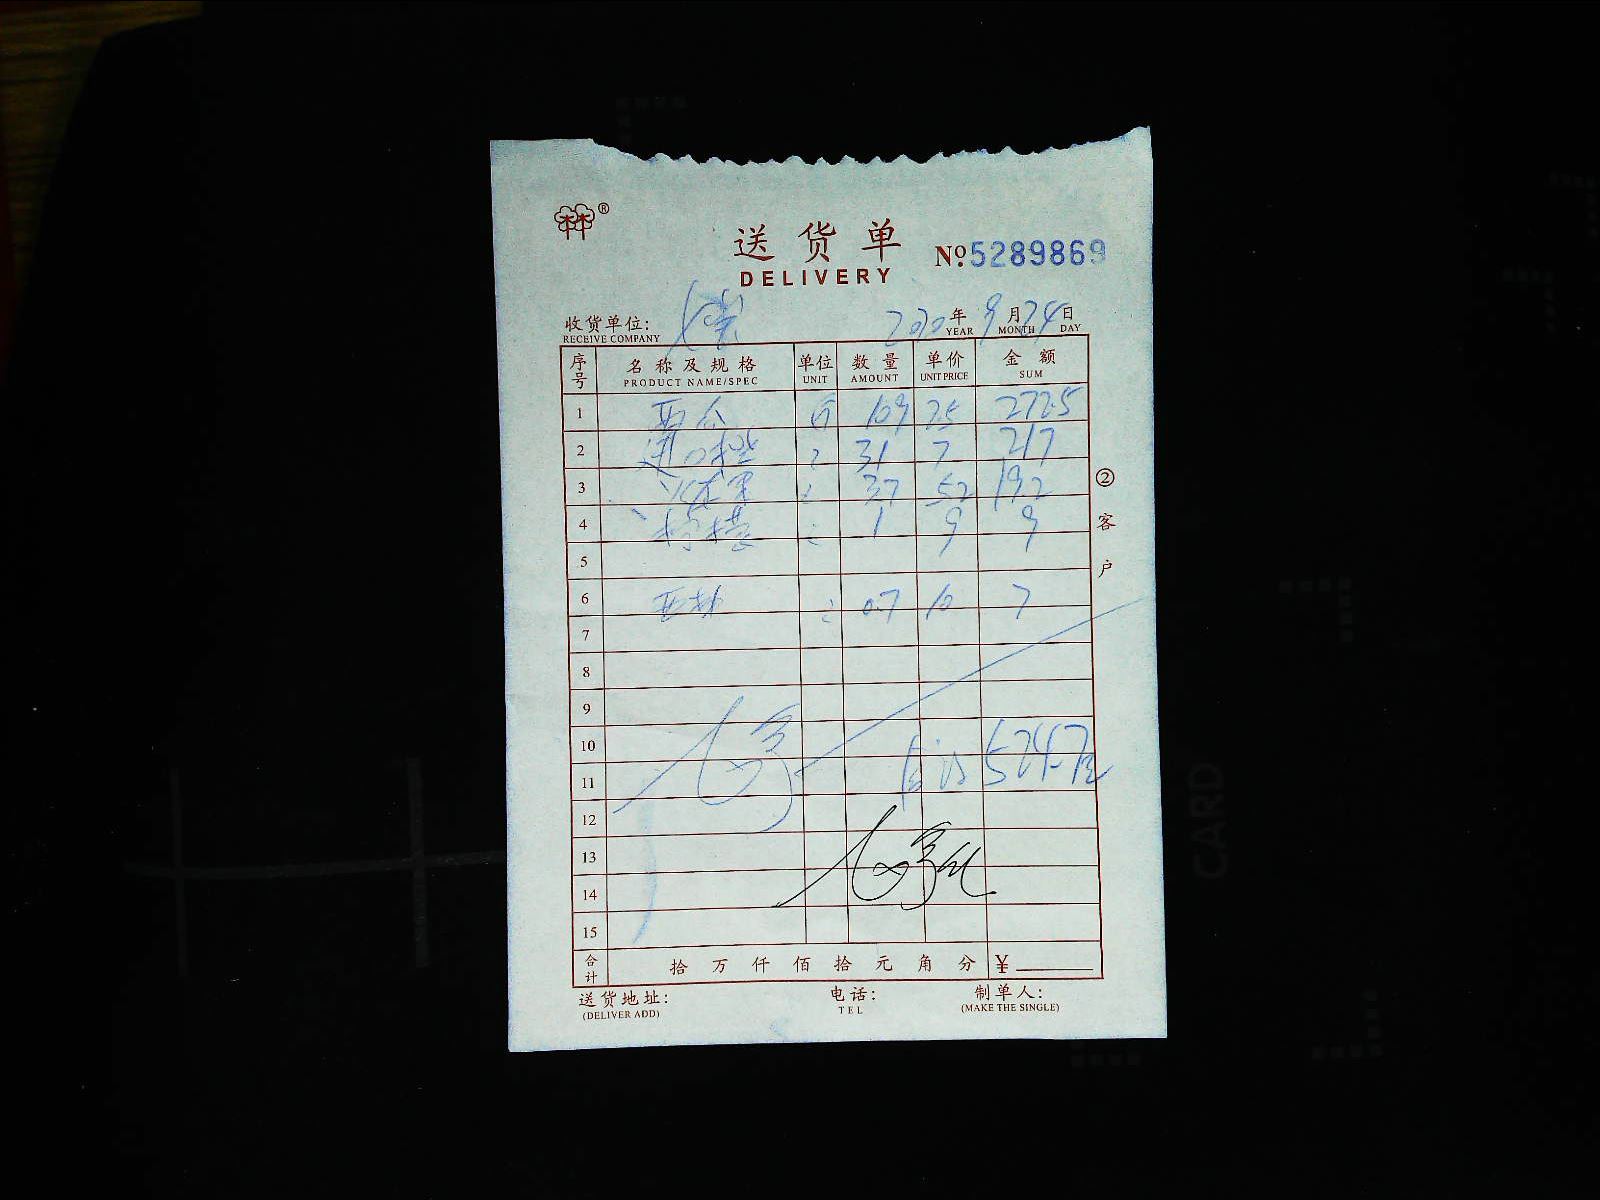 ®
送货单
DELIVERY
No 5289869
收货单位:
RECEIVE COMPANY
2020 年 9 月 24 日
YEAR MONTH DAY
序号 名称及规格 单位 数量 单价 金额
PRODUCT NAME/SPEC UNIT AMOUNT UNIT PRICE SUM
1 西瓜 斤 109 2.5 272.5
2 进口橙 31 7 217
3 火龙果 3.7 5.2 19.2
4 柠檬 1 9 9
5
6 西柚 0.7 10 7
7
8
9
10
11 524.7元
12
13
14
15
合计 拾 万 仟 佰 拾 元 角 分 ¥
②客户
送货地址: 电话: 制单人:
(DELIVER ADD) TEL (MAKE THE SINGLE)
CARD